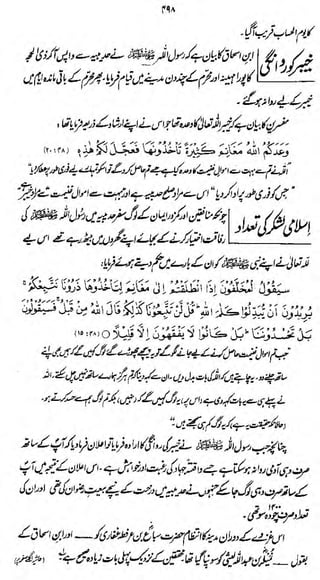 ۴۹۸
کا یوم الحساب قریب آ گیا۔
خیبر کو روانگی
ابن اسحاق کا بیان ہے کہ رسول اللہ ﷺ نے حدیبیہ سے واپس آ کر ذی الحجہ
کا پورا مہینہ اور محرم کے چند دن مدینے میں قیام فرمایا۔ پھر محرم کے باقی ماندہ ایام میں
خیبر کے لیے روانہ ہو گئے۔
مفسرین کا بیان ہے کہ خیبر اللہ تعالیٰ کا وعدہ تھا جو اس نے اپنے ارشاد کے ذریعہ فرمایا تھا:
وَعَدَكُمُ اللهُ مَغَانِمَ كَثِيْرَةً تَأْخُذُوْنَهَا فَعَجَّلَ لَكُمْ هٰذِهٖ (۲۰:۴۸)
اللہ نے تم سے بہت سے اموالِ غنیمت کا وعدہ کیا ہے جسے تم حاصل کرو گے تو اس کو تمہارے لیے فوری طور پر عطا کر دیا"
"جس کو فوری طور پر ادا کر دیا" اس سے مراد صلح حدیبیہ ہے اور بہت سے اموالِ غنیمت سے مراد خیبر ہے
اسلامی لشکر کی تعداد
چونکہ منافقین اور کمزور ایمان کے لوگ سفرِ حدیبیہ میں رسول اللہ ﷺ کی
رفاقت اختیار کرنے کے بجائے اپنے گھروں میں بیٹھ رہے تھے اس لیے
اللہ تعالیٰ نے اپنے نبی ﷺ کو ان کے بارے میں حکم دیتے ہوئے فرمایا:
سَيَقُوْلُ الْمُخَلَّفُوْنَ اِذَا انْطَلَقْتُمْ اِلٰى مَغَانِمَ لِتَأْخُذُوْهَا ذَرُوْنَا نَتَّبِعْكُمْ ۚ
يُرِيْدُوْنَ اَنْ يُّبَدِّلُوْا كَلٰمَ اللهِ ۭ قُلْ لَّنْ تَتَّبِعُوْنَا كَذٰلِكُمْ قَالَ اللهُ مِنْ قَبْلُ ۚ فَسَيَقُوْلُوْنَ
بَلْ تَحْسُدُوْنَنَا ۭ بَلْ كَانُوْا لَا يَفْقَهُوْنَ اِلَّا قَلِيْلًا ○ (۱۵:۴۸)
جب تم اموالِ غنیمت حاصل کرنے کے لیے جانے لگو گے تو یہ پیچھے چھوڑے گئے لوگ کہیں گے کہ ہمیں بھی اپنے
ساتھ چلنے دو۔ یہ چاہتے ہیں کہ اللہ کی بات بدل دیں۔ ان سے کہہ دینا کہ تم ہرگز ہمارے ساتھ نہیں چل سکتے۔ اللہ
نے پہلے ہی سے یہ بات کہہ دی ہے (اس پر) یہ لوگ کہیں گے کہ (نہیں) بلکہ تم لوگ ہم سے حسد کرتے ہو۔
(حالانکہ حقیقت یہ ہے) کہ یہ لوگ کم ہی سمجھتے ہیں"
چنانچہ جب رسول اللہ ﷺ نے خیبر کی روانگی کا ارادہ فرمایا تو اعلان فرما دیا کہ آپ کے ساتھ
صرف وہی آدمی روانہ ہو سکتا ہے جسے واقعۃً جہاد کی رغبت اور خواہش ہے۔ اس اعلان کے نتیجہ میں آپ
کے ساتھ صرف وہی لوگ جا سکے جنہوں نے حدیبیہ میں درخت کے نیچے بیعتِ رضوان کی تھی اور ان کی
تعداد صرف چودہ سو تھی۔
اس غزوے کے دوران مدینہ کا انتظام حضرت سباع بن عرفطہ غفاری کو —— اور ابن اسحاق کے
بقول —— نُمَیلہ بن عبداللہ لیثی کو سونپا گیا تھا۔ محققین کے نزدیک پہلی بات زیادہ صحیح ہے